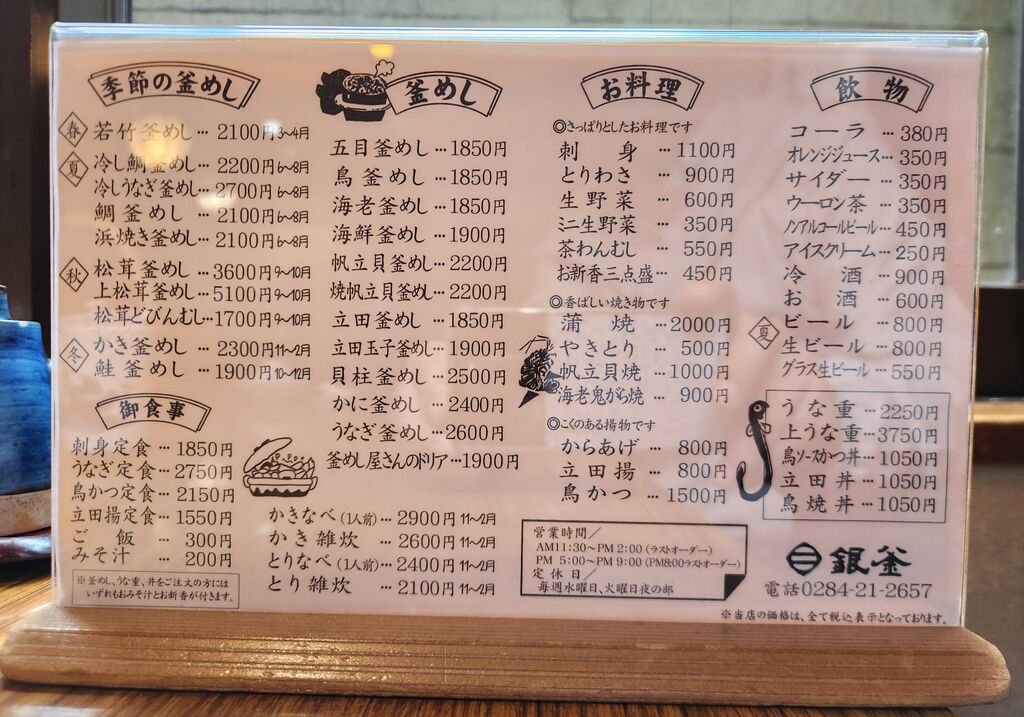 季節の釜めし
春 若竹釜めし… 2100円 3〜4月
夏 冷し鯛釜めし… 2200円 6〜8月
冷しうなぎ釜めし… 2700円 6〜8月
鯛釜めし … 2100円 6〜8月
浜焼き釜めし… 2100円 6〜8月
秋 松茸釜めし… 3600円 9〜10月
上松茸釜めし… 5100円 9〜10月
松茸どびんむし… 1700円 9〜10月
冬 かき釜めし … 2300円 11〜2月
鮭釜めし … 1900円 10〜12月
御食事
刺身定食… 1850円
うなぎ定食… 2750円
鳥かつ定食… 2150円
立田揚定食… 1550円
ご飯 … 300円
みそ汁 … 200円
※釜めし、うな重、丼をご注文の方には
いずれもおみそ汁とお新香が付きます。
釜めし
五目釜めし … 1850円
鳥釜めし … 1850円
海老釜めし … 1850円
海鮮釜めし … 1900円
帆立貝釜めし… 2200円
焼帆立貝釜めし… 2200円
立田釜めし … 1850円
立田玉子釜めし… 1900円
貝柱釜めし … 2500円
かに釜めし … 2400円
うなぎ釜めし… 2600円
釜めし屋さんのドリア… 1900円
かきなべ(1人前)… 2900円 11〜2月
かき雑炊 … 2600円 11〜2月
とりなべ(1人前)… 2400円 11〜2月
とり雑炊 … 2100円 11〜2月
お料理
◎さっぱりとしたお料理です
刺身 … 1100円
とりわさ … 900円
生野菜 … 600円
ミニ生野菜 … 350円
茶わんむし … 550円
お新香三点盛… 450円
◎香ばしい焼き物です
蒲焼 … 2000円
やきとり … 500円
帆立貝焼 … 1000円
海老鬼がら焼… 900円
◎こくのある揚物です
からあげ … 800円
立田揚 … 800円
鳥かつ … 1500円
営業時間/
AM11:30〜PM2:00(ラストオーダー)
PM 5:00〜PM9:00(PM8:00ラストオーダー)
定休日/
毎週水曜日、火曜日夜の部
飲物
コーラ … 380円
オレンジジュース… 350円
サイダー … 350円
ウーロン茶 … 350円
ノンアルコールビール… 450円
アイスクリーム… 250円
冷酒 … 900円
お酒 … 600円
ビール … 800円
夏 生ビール … 800円
グラス生ビール… 550円
うな重… 2250円
上うな重… 3750円
鳥ソースかつ丼… 1050円
立田丼… 1050円
鳥焼丼… 1050円
銀釜
電話0284-21-2657
※当店の価格は、全て税込表示となっております。